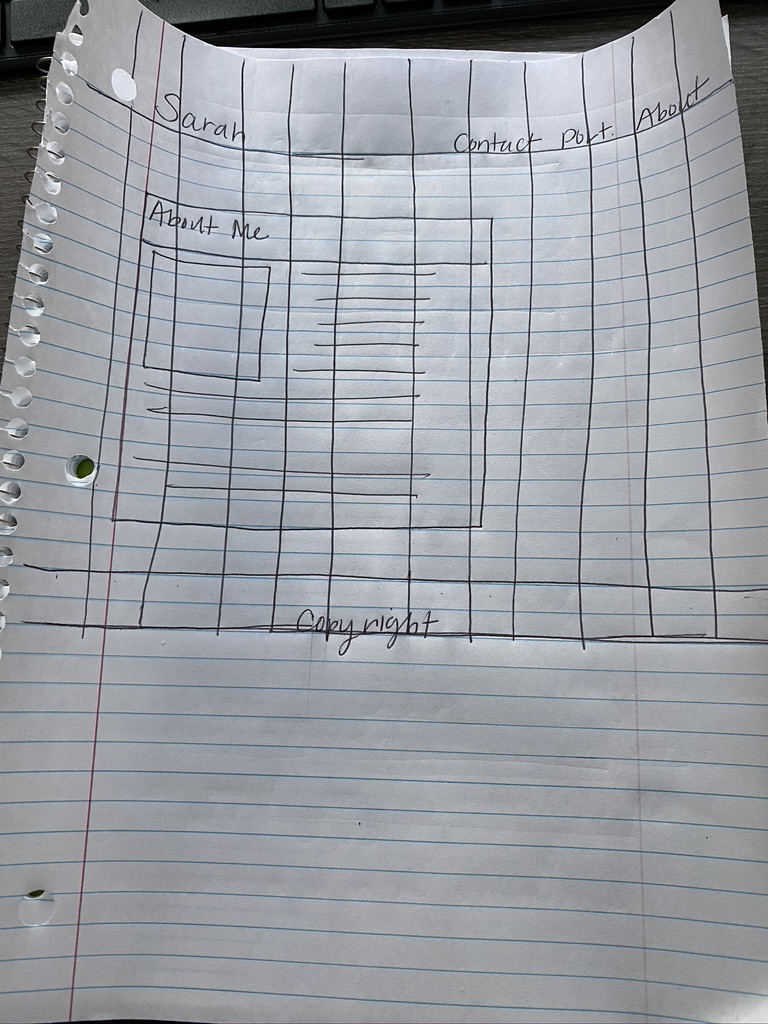 Sarah Contact Port. About
About Me
Copyright